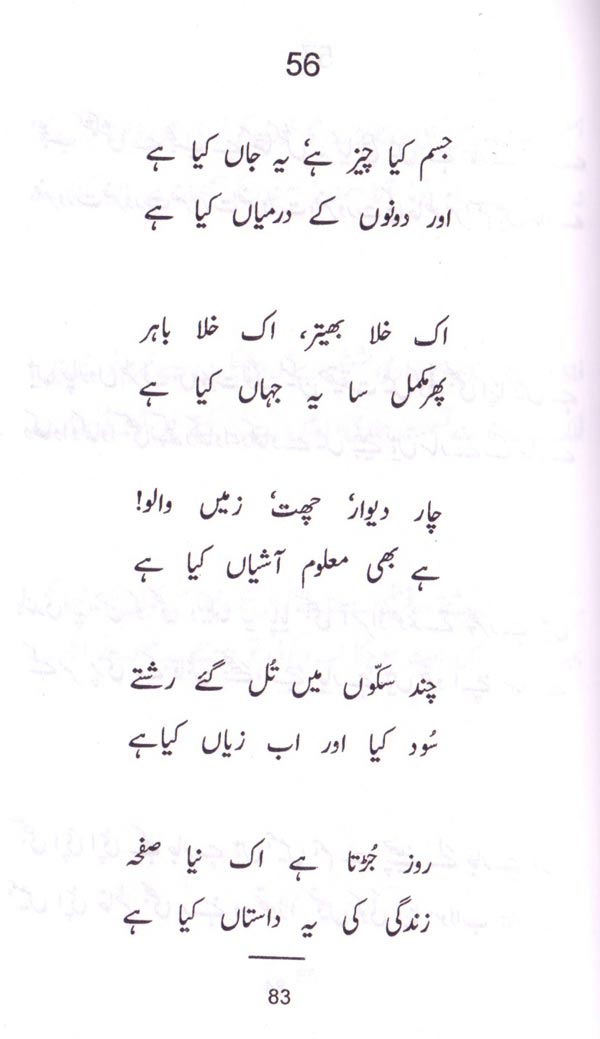 56
جسم کیا چیز ہے، یہ جاں کیا ہے
اور دونوں کے درمیاں کیا ہے
اک خلا بھیتر، اک خلا باہر
پھر مکمل سا یہ جہاں کیا ہے
چار دیوار، چھت، زمیں والو!
ہے بھی معلوم آشیاں کیا ہے
چند سکّوں میں تُل گئے رشتے
سُود کیا اور اب زیاں کیا ہے
روز جُڑتا ہے اک نیا صفحہ
زندگی کی یہ داستاں کیا ہے
83